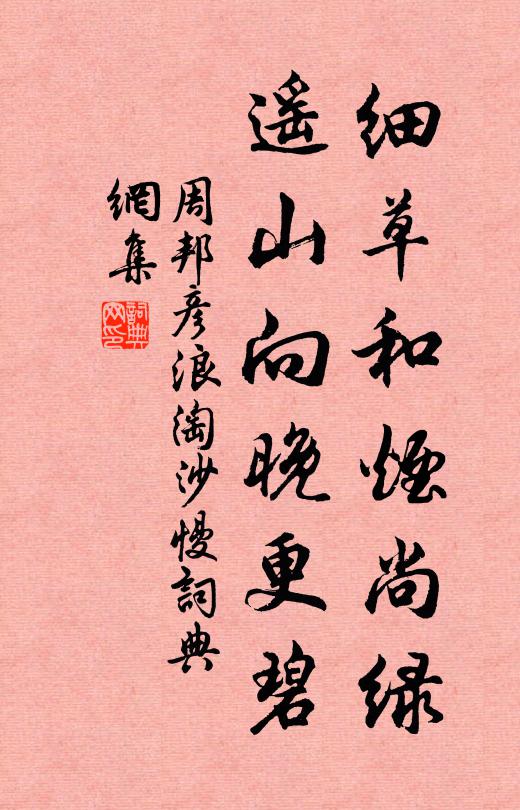 细草和烟尚绿
遥山向晚更碧
周邦彦浪淘沙慢词典
網集
詞典网印